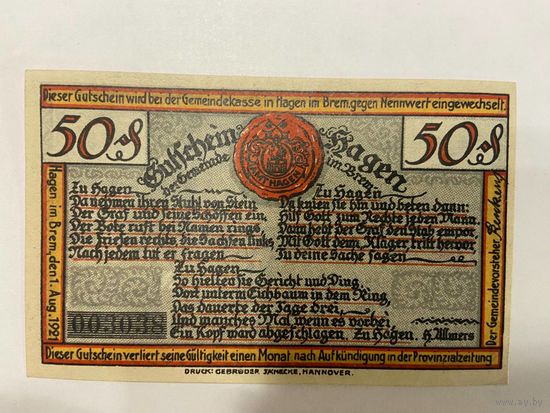 Dieser Gutschein wird bei der Gemeindekasse in Hagen im Brem. gegen Nennwert eingewechselt.
50 ₰
Gutschein
der Gemeinde
Hagen
im Brem.
50 ₰
AMT HAGEN
Zu Hagen
Da nehmen ihren Stuhl von Stein
Der Graf und seine Schöffen ein.
Der Bote ruft bei Namen rings,
Die Friesen rechts die Sachsen links,
Nach jedem tut er fragen
Zu Hagen
Da knien sie hin und beten dann:
Hilf Gott zum Rechte jedem Mann.
Dann hebt der Graf den Stab empor.
Mit Gott dem Kläger tritt hervor
Tu deine Sache sagen
Zu Hagen
So hielten sie Gericht und Ding
Dort unterm Eichbaum in dem Ring,
Das dauerte der Tage drei,
Und manches Mal wenn es vorbei
Ein Kopf ward abgeschlagen Zu Hagen. H. Allmers
Hagen im Brem. den 1. Aug. 192
003038
Der Gemeindevorsteher
Dieser Gutschein verliert seine Gültigkeit einen Monat nach Aufkündigung in der Provinzialzeitung
DRUCK: GEBRÜDER JÄNECKE, HANNOVER.
ay.by